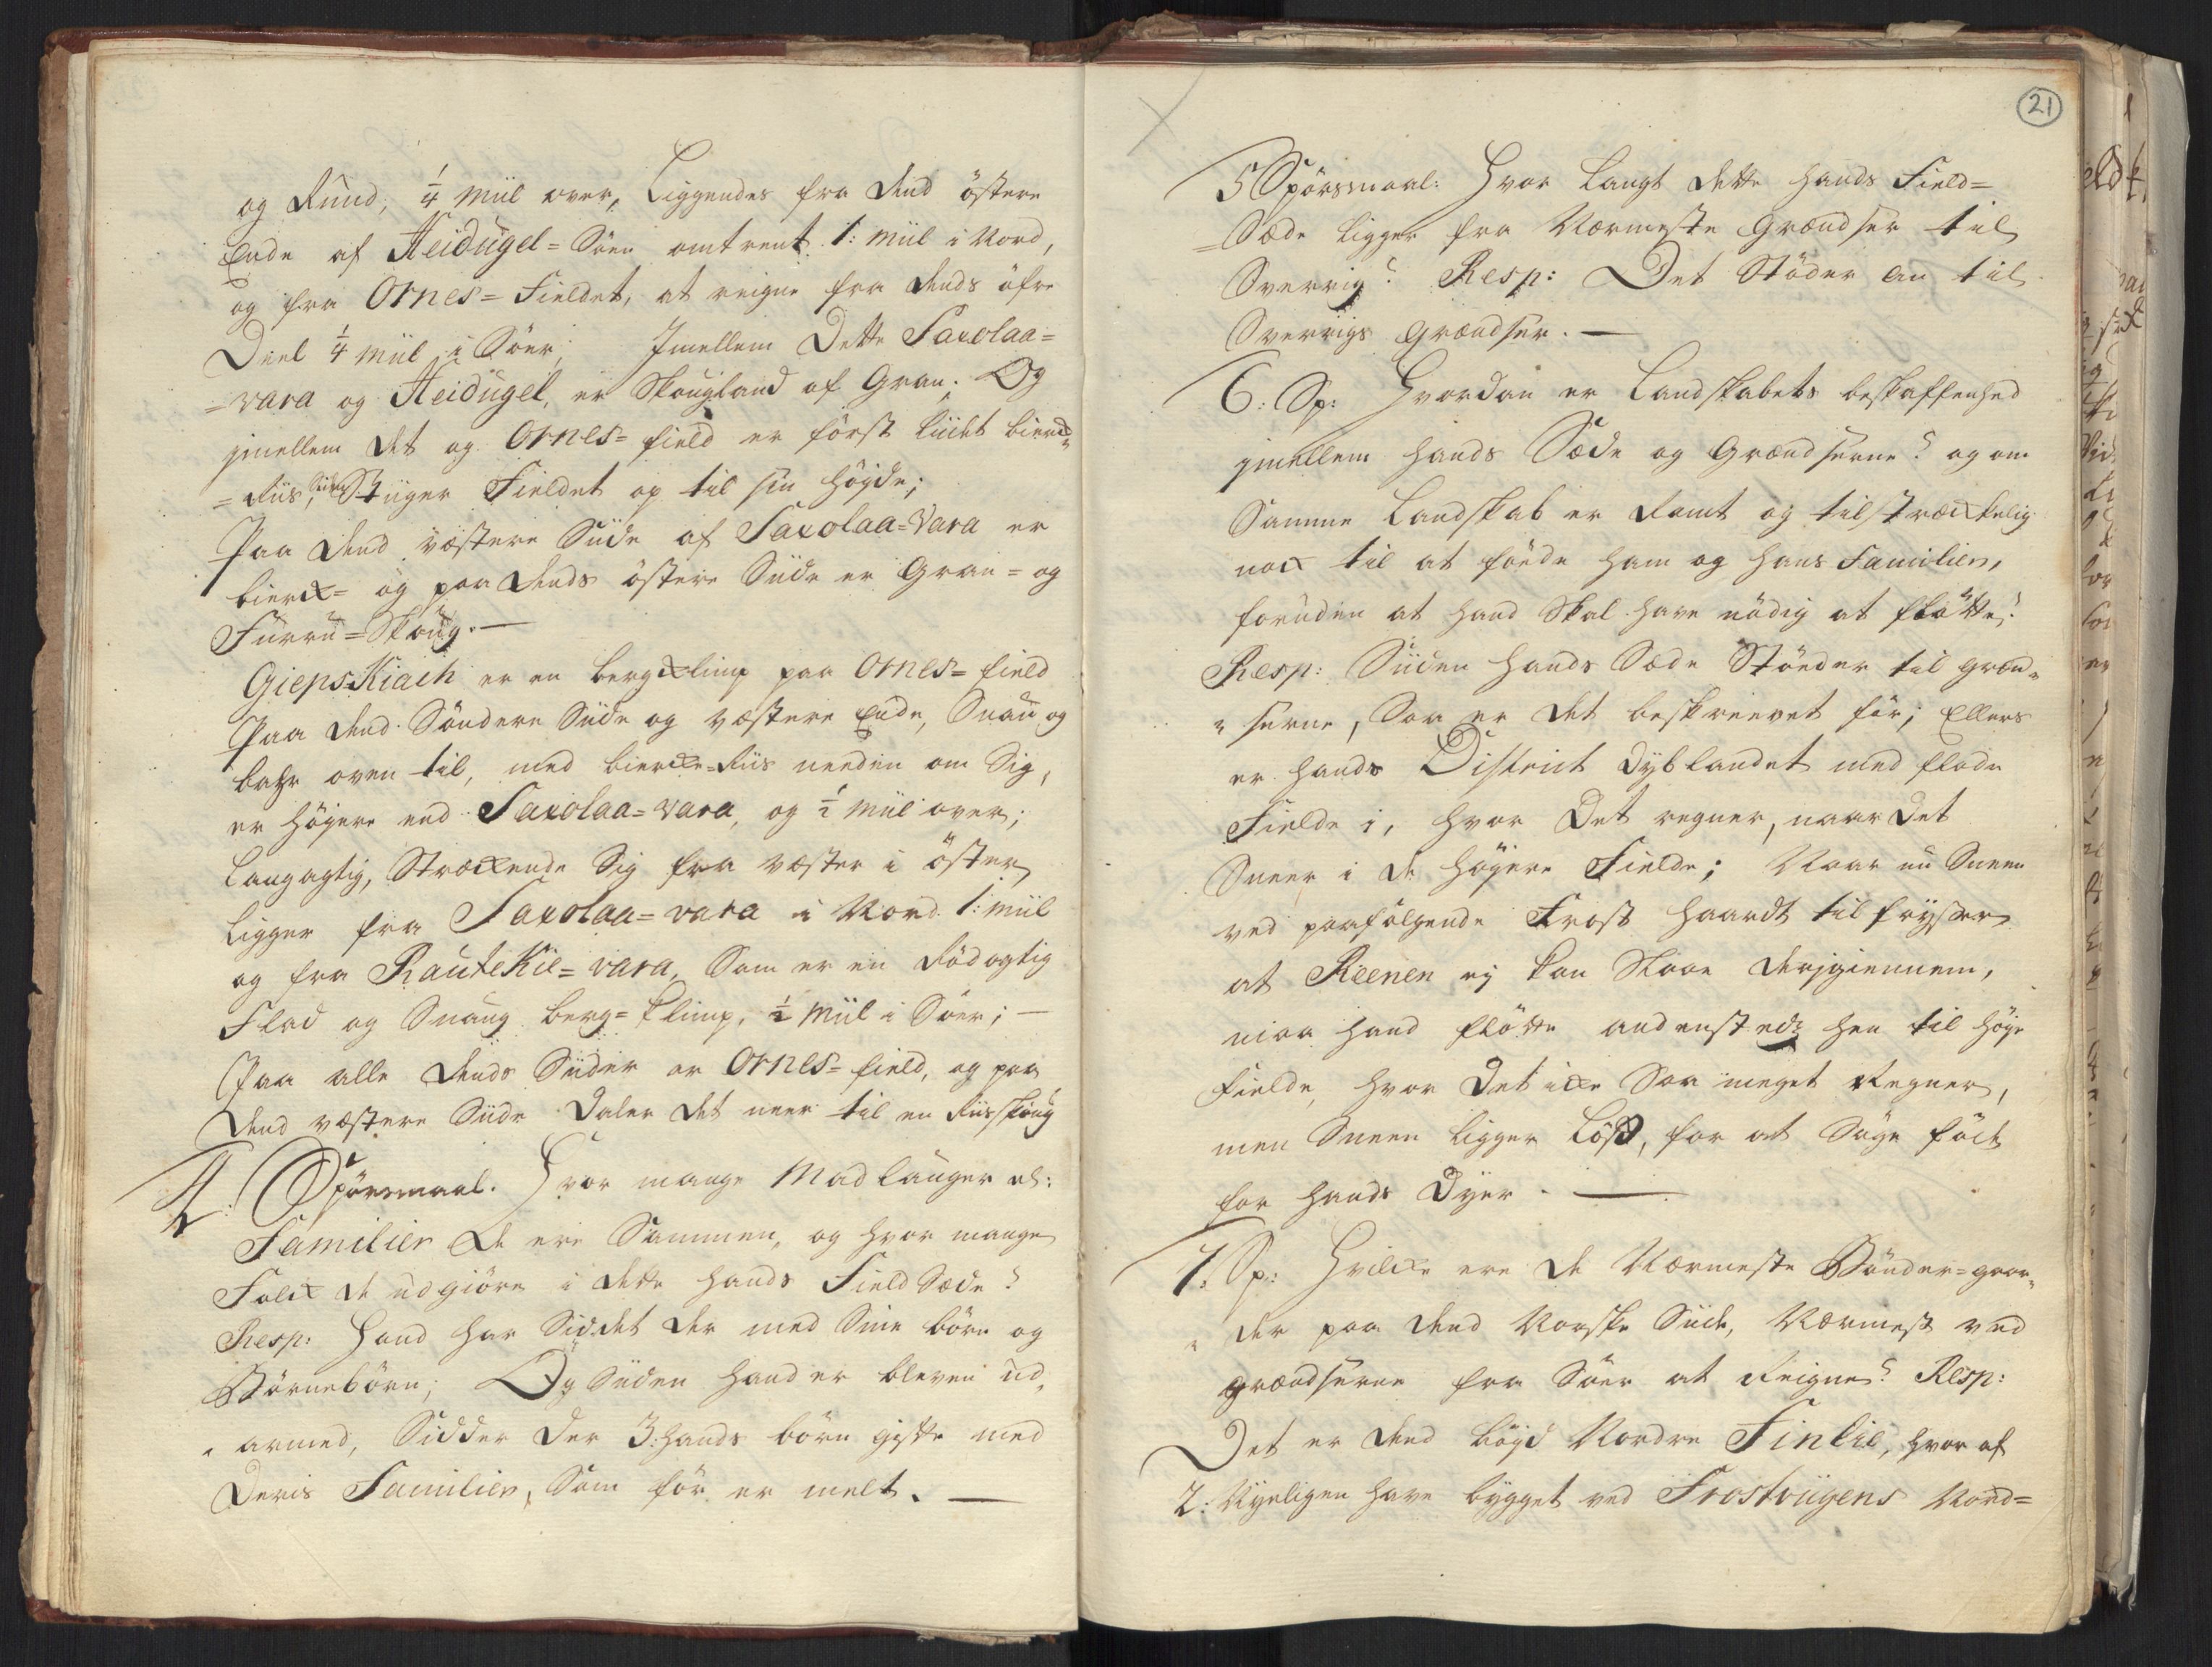 og Rund, 1/4 Miil over, Liggendes fra dend östere
Ende af Heidugel=Söen omtrent 1: Miil i Nord,
og fra Ornes=Fieldet, at reigne fra dends öfre
Deel 1/4 Miil i Söer; Jmellem Dette Saxolaa=
=vara og Heidugel, er Skougland af Gran. Og
jmellem det og Ornes=field er först lidet bierck=
=Riis, siden Stiiger Fieldet op til sin höyde;
Paa dend væstere Siide af Saxolaa=Vara er
bierck= og paa dends östere Siide er Gran= og
Furru=Skoug. —
GiepsKiach er en berg klimp paa Ornes=field
Paa dend Söndere Siide og væstere Ende, Snau og
bahr oven til, med biercke=Riis needen om Sig,
er höyere end Saxolaa=vara, og 1/2 Miil over;
Langagtig, Streckende Sig fra væster i öster
ligger fra Saxolaa=vara i Nord 1: Miil
og fra RauteKie=vara, Som er en Rödagtig
Flad og Snaug berg=klimp, 1/2 Miil i Söer; —
Paa alle dends Siider er Ornes=field, og paa
dend væstere Siide Daler det neer til en Riisskoug
4: Spörsmaal. Hvor mange Madlauger el:
Familier de ere Sammen, og hvor mange
Folck de udgiöre i dette hands Field Sæde?
Resp: Hand har Siddet der med Sine börn og
Börnebörn; Og Siiden hand er bleven ud,
armed, Sidder der 3: hands börn gifte med
Deris Familier, Som för er melt. —
21
5 Spörsmaal: Hvor Langt dette hands Field=
=Sæde ligger fra Nærmeste Grændser til
Sverrig? Resp: Det Stöder an til
Sverrigs Grændser. —
6: Sp: Hvordan er Landskabets beskaffenhed
jmellem hands Sæde og Grændserne? og om
Samme Landskab er Ramt og tilstræckelig
nock til at föede ham og hans Familier,
foruden at hand Skal have nödig at flötte?
Resp: Siiden hands Sæde Stöeder til græn=
serne, Saa er det beskreevet för; Ellers
er hands District dyblændet med flade
Fielde i, hvor Det regner, naar det
Sneer i de höyere Fielde; Naar nu Sneen
ved paafölgende Frost haardt til fryser
at Reenen ej kan Slaae derjgiennem,
niaa hand flötte andensteds hen til höye
Fielde, hvor Det icke Saa meget Regner,
men Sneen ligger Lös, for at Söge föde
for hands Dyer. —
7: Sp: Hvilcke ere de Nærmeste Bönder=gaar=
der paa dend Norske Siide, Nærmest ved
grændserne fra Söer at Reigne? Resp:
Det er dend bögd Nordre Finlie, hvor af
2: Nyeligen have bygget ved Frostviigens Nord=